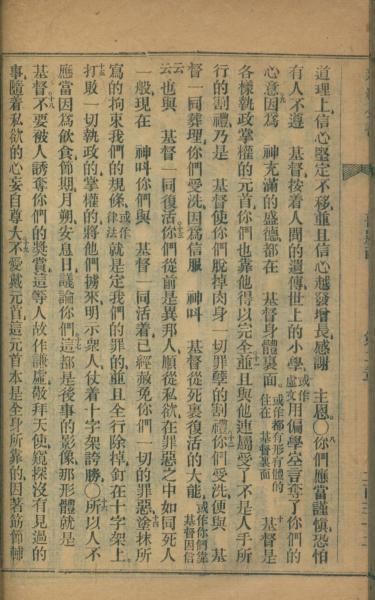 道理上信心堅定不移並且信心越發增長感謝　主恩○八你們應當謹慎恐怕
有人不遵　基督按着人間的遺傳世上的小學或作虛文用偏學空言奪了你們的
心意九因為　神充滿的盛德都在　基督身體裏面或作都有形有體的住在　基督裏面十　基督是
各樣執政掌權的元首你們也靠他得以完全十一並且與他連屬受了不是人手所
行的割禮乃是　基督使你們脫掉肉身一切罪孽的割禮十二你們受洗便與　基
督一同葬埋你們受洗因為信服　神叫　基督從死裏復活的大能或作你們靠　基督因信云云
也與　基督一同復活十三你們從前是異邦人順從私欲在罪惡之中如同死人
一般現在　神叫你們與　基督一同活着已經赦免你們一切的罪惡十四塗抹所
寫的拘束我們的規條或作律法就是定我們的罪的並且全行除掉釘在十字架上
十五打敗一切執政的掌權的將他們擄來明示衆人仗着十字架誇勝○十六所以人不
應當因為飲食節期月朔安息日議論你們十七這都是後事的影像那形體就是
基督十八不要被人誘奪你們的獎賞這等人故作謙虛敬拜天使窺探沒有見過的
事隨着私欲的心妄自尊大十九不愛戴元首這元首本是全身所靠的因著筋節輔